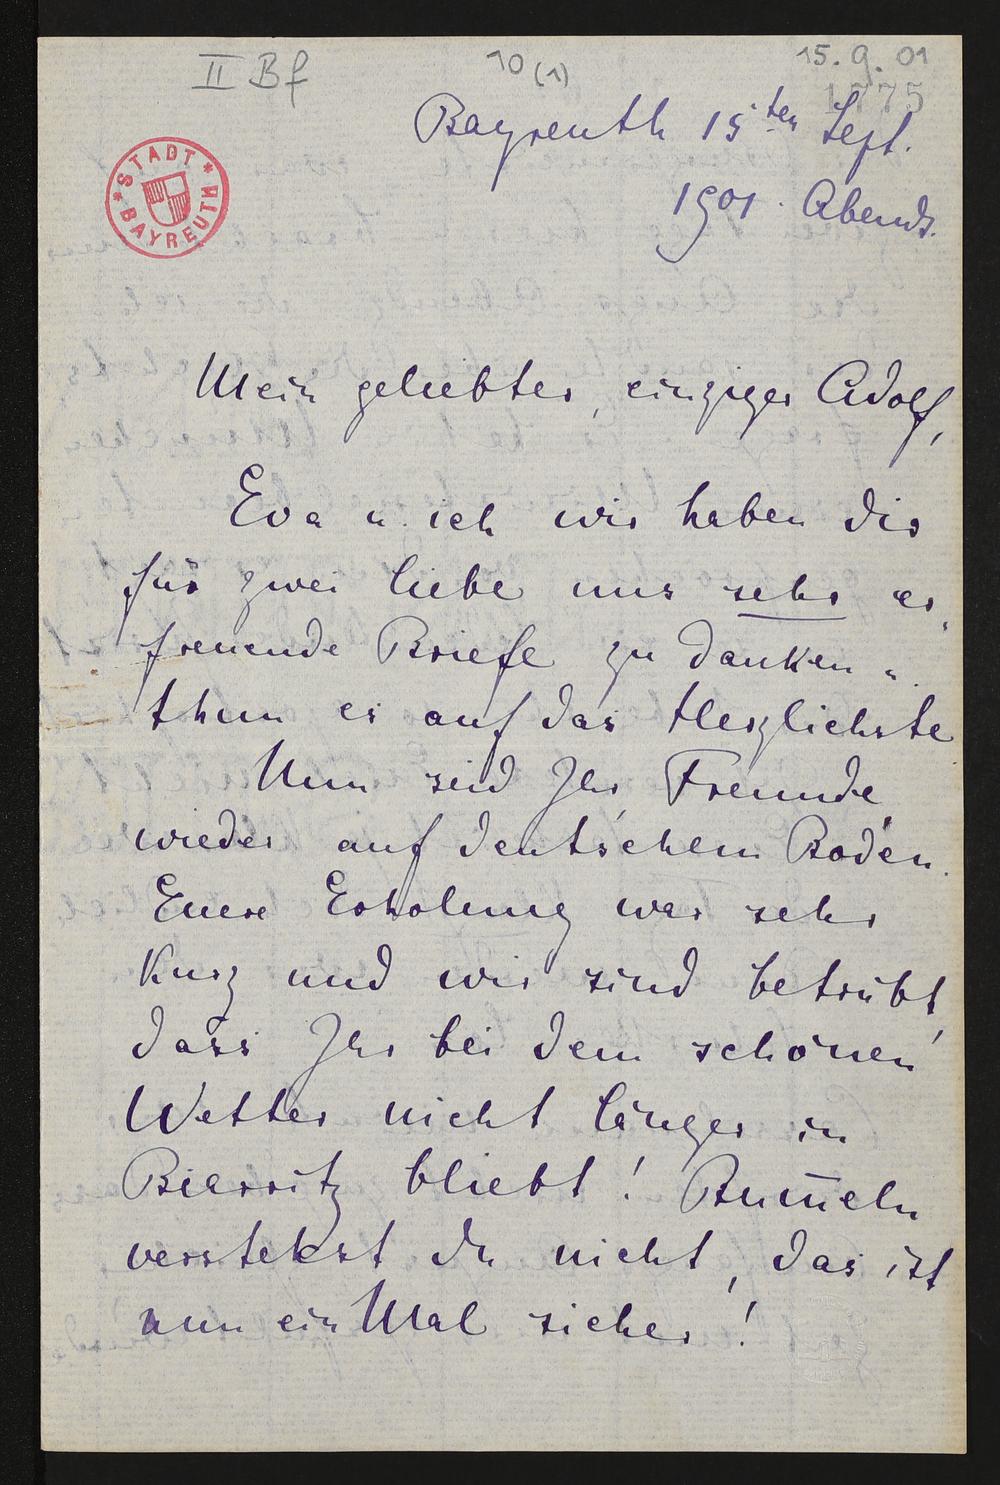 II Bf
10 (1)
15. 9. 01
1775
Bayreuth 15ten Sept.
1901. Abends.
* STADT *
BAYREUTH
Mein geliebter, einziger Adolf,
Eva u. ich wir haben dir
für zwei liebe uns sehr er„
freuende Briefe zu danken u.
thun es auf das Herzlichste
Nun sind Ihr, Freunde,
wieder auf deutschem Boden.
Euere Erholung war sehr
Kurz und wir sind betrübt,
dass Ihr bei dem schönen
Wetter nicht länger in
Biarritz bliebt! Bum̅eln
verstehst du nicht, das ist
nun ein Mal sicher!